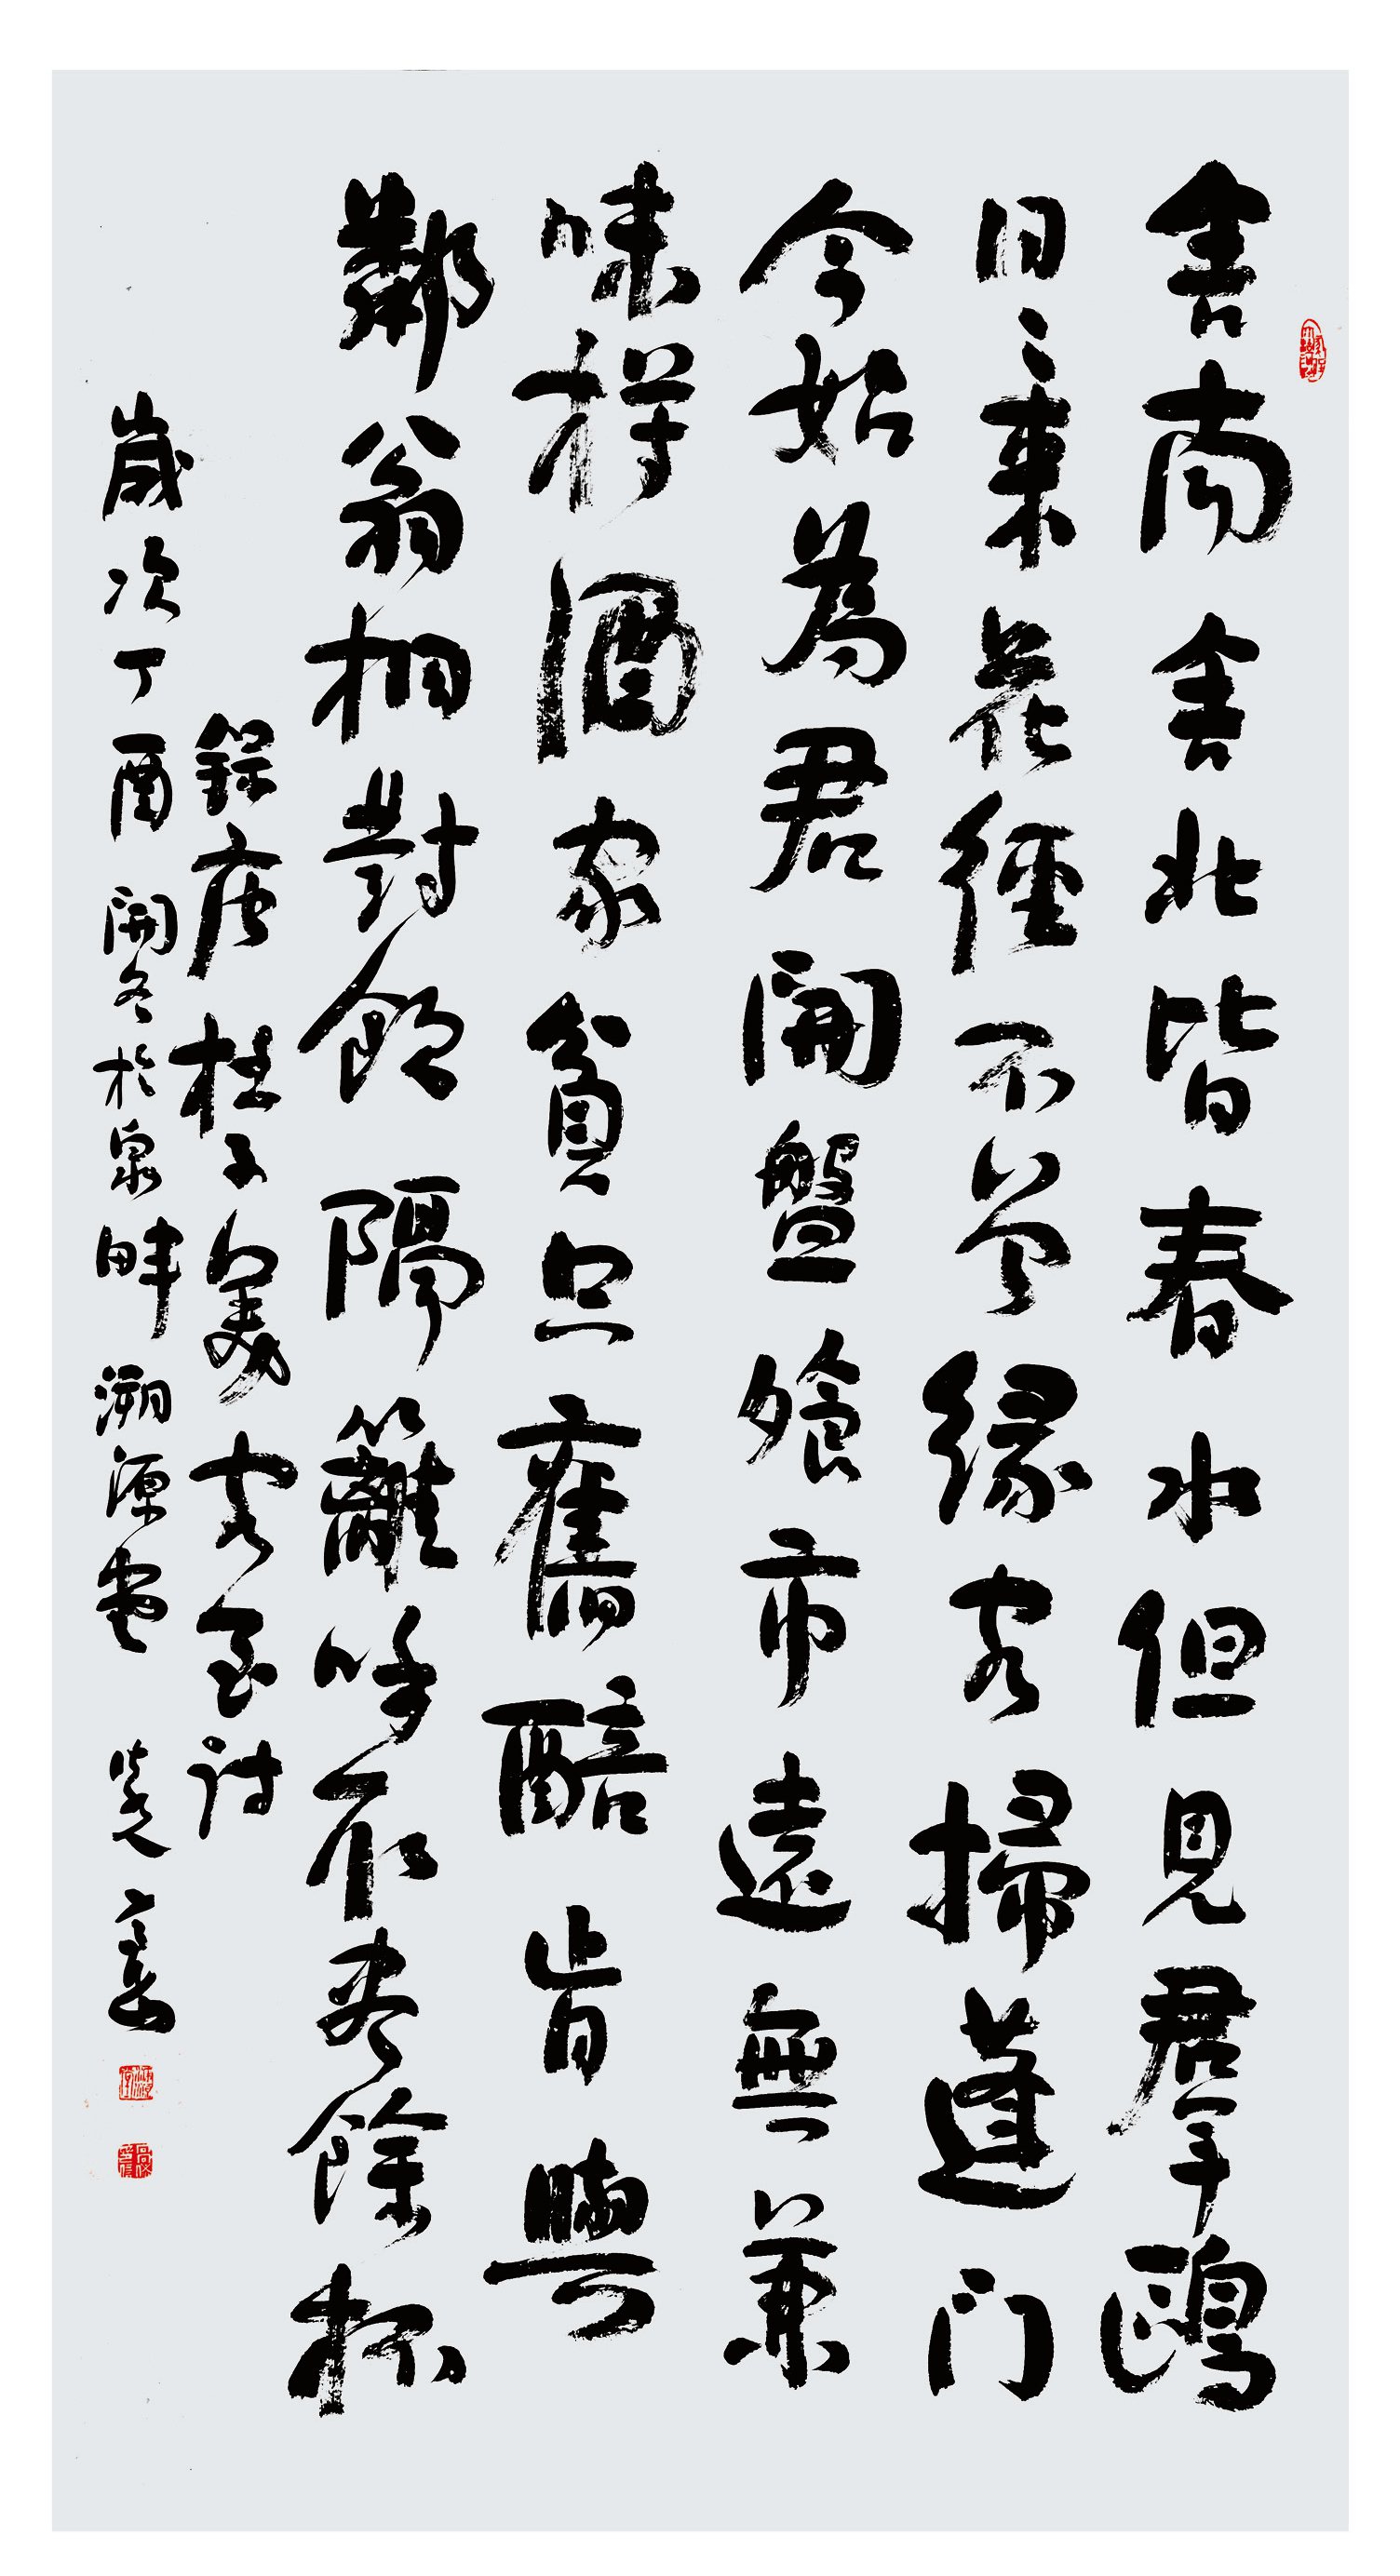 舍南舍北皆春水但見羣鷗
日〻來花徑不曾緣客掃蓬門
今始為君開盤飧市遠無兼
味樽酒家貧只舊醅肯與
鄰翁相對飲隔籬呼取盡餘杯
錄唐杜子美客至詩
歲次丁酉開冬於泉畔溯源堂